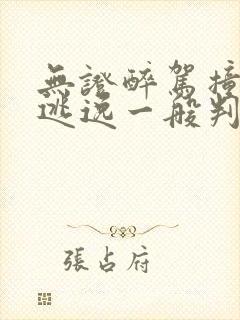 無證醉駕撞
逃逸一般判
張占府